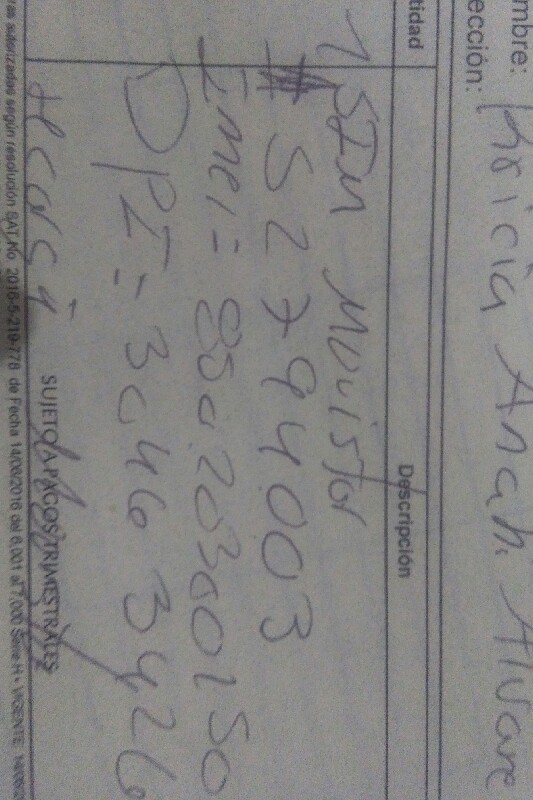 mbre: Kricia Anahi Alvare
ección:
tidad Descripción
1 SIM Movistar
# 52794003
Imei= 85020300150
DPI= 3046 3426
SUJETO A PAGOS TRIMESTRALES
ras autorizadas según resolución SAT No. 2016-5-219-778 de Fecha 14/06/2016 del 6,001 al 7,000 Serie H • VIGENTE: